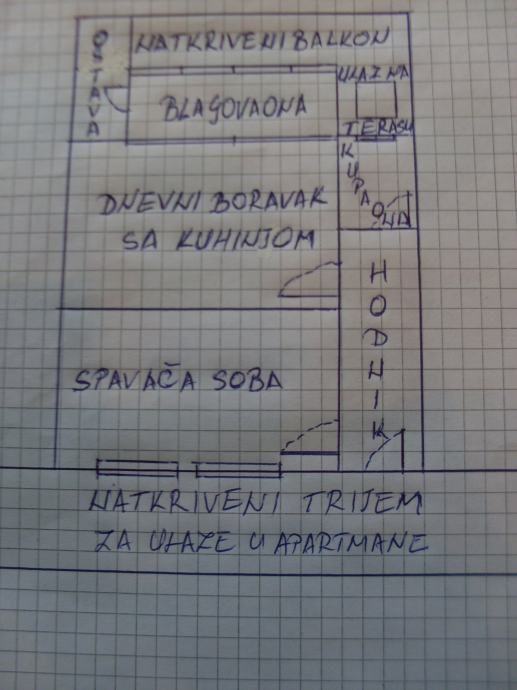 OSTAVA
NATKRIVENI BALKON
ULAZ NA
TERASU
BLAGOVAONA
KUPAONA
DNEVNI BORAVAK
SA KUHINJOM
HODNIK
SPAVAČA SOBA
NATKRIVENI TRIJEM
ZA ULAZE U APARTMANE